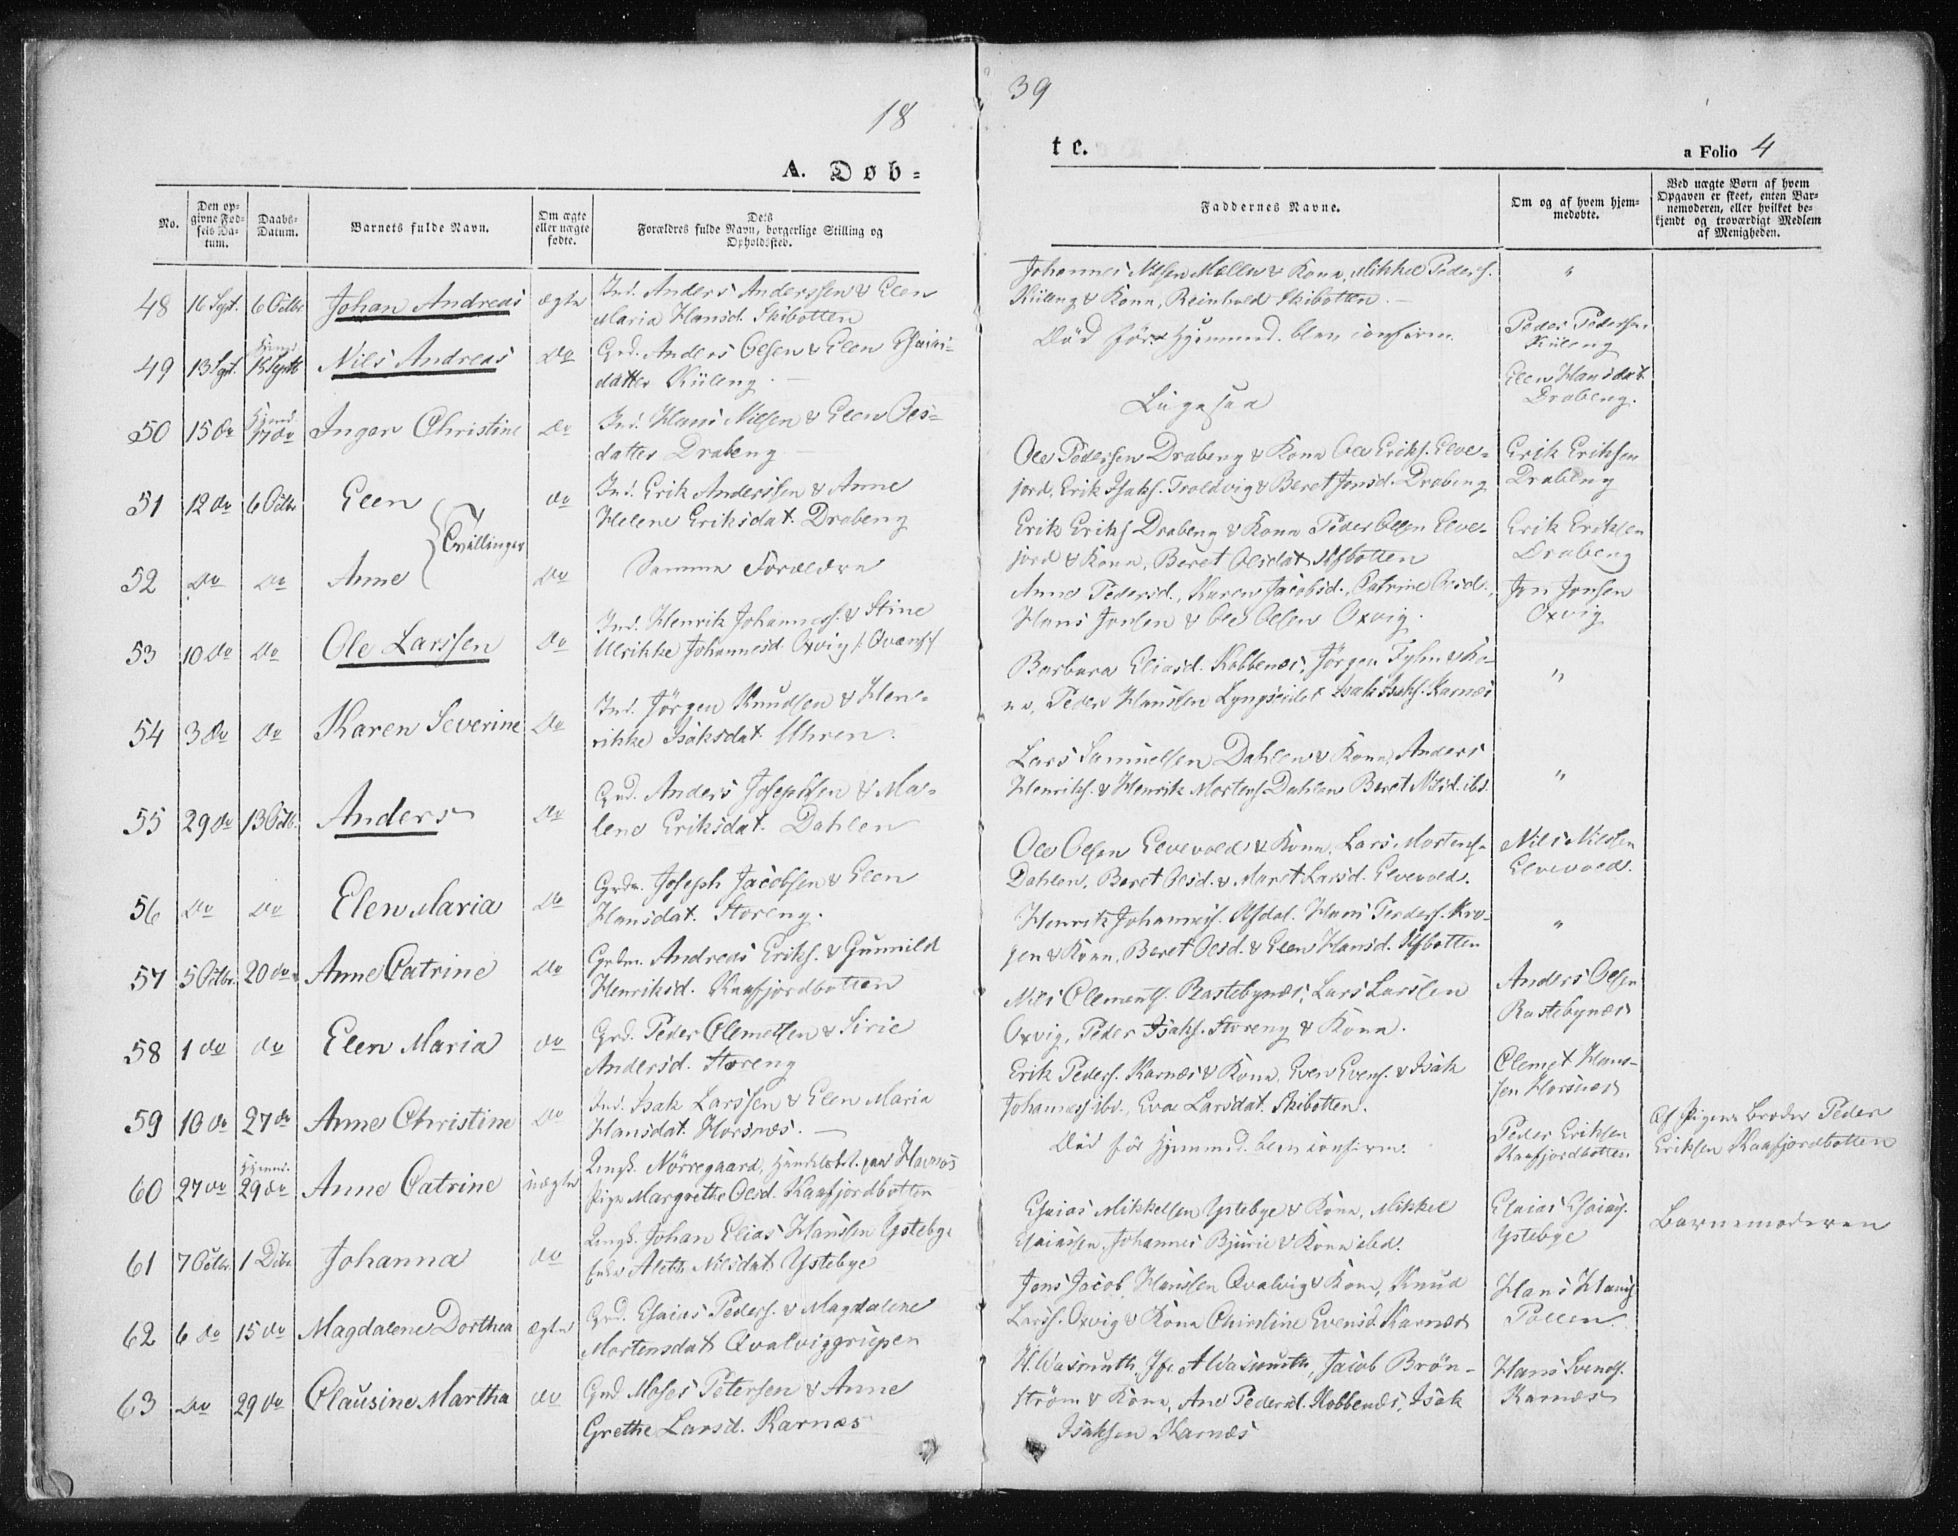 18
39
A. Døb=
te.
a Folio 4
No.
Den op-
givne Fød-
sels Da-
tum.
Daabs-
Datum.
Barnets fulde Navn.
Om ægte
eller uægte
fødte.
Dets
Forældres fulde Navn, borgerlige Stilling og
Opholdssted.
Faddernes Navne.
Om og af hvem hjem-
medøbte.
Ved uægte Børn af hvem
Opgaven er skeet, enten Bar-
nemoderen, eller hvilket be-
kjendt og troværdigt Medlem
af Menigheden.
48 16 Sept. 6 Octbr Johan Andreas ægte Ind. Anders Anderssen & Elen
Maria Hansd. Skibotten
Johannes Nilsen Mellen & Kone, Mikkel Peders.
Kiileng & Kone, Reinhold Skibotten. "
49 13 Sept. 15 Septb Nils Andreas Do Grd. Anders Olsen & Elen Esaias-
datter Kiileng.
Død før Hjemmed. blev confirm.
Peder Pedersen
Kiileng
50 15 Do Hjemd. 17 do Inger Christine Do Ind. Hans Nilsen & Elen Ols-
datter Drabeng
Ligesaa
Elen Hansdat
Drabeng.
51 12 do 6 Octbr Elen do Ind. Erik Anderssen & Anne
Helene Eriksdat. Drabeng
Tvillinger
Ole Pedersen Drabeng & Kone Ole Eriks. Elve-
jord, Erik Isaks. Troldvig & Beret Jonsd. Drabeng
Erik Eriksen
Drabeng
52 Do Do Anne Do Samme Forældre
Erik Eriks. Drabeng & Kone Peder Olsen Elve-
jord & Kone, Beret Olsdat.
Erik Eriksen
Drabeng
53 10 Do Do Ole Larssen Do Ind. Henrik Johanness. & Stine
Ulrikke Johannesd. Oxvig
Anne Pedersd., Karen Jacobsd., Catrine Olsd.,
Hans Jonsen & Ole Olsen Oxvig.
Jon Jonsen
Oxvig
54 3 Do Do Karen Severine Do Ind. Jørgen Knudsen & Hen-
rikke Isaksdat. Uhren.
Barbara Eliasd. Kobbenæs, Jørgen Fyhn & Ko-
ne, Peder Hanssen Lyngseidet Isak Isaks. Karnæs "
55 29 do 13 Octb. Anders Do Grd. Anders Josephsen & Ma-
lene Eriksdat. Dahlen
Lars Samuelsen Dahlen & Kone, Anders
Henriks. & Henrik Mortens. Dahlen Beret Nilsd. ibd. "
56 Do Do Elen Maria Do Grdm. Joseph Jacobsen & Elen
Hansdat. Storeng.
Ole Olsen Elvevold & Kone, Lars Mortens.
Dahlen, Beret Olsd. & Maret Larsd. Elvevold.
Nils Nilssen
Elvevold.
57 5 Octbr. 20 do Anne Catrine Do Grdm. Andreas Eriks. & Gunnild
Henriksd. Kaafjordbotten
Henrik Johanness. Hans Peders. Kro-
gen & Kone, Beret Olsd. & Elen Hansd. "
58 1 do do Elen Maria do Grd. Peder Clemetsen & Sirie
Andersd. Storeng
Nils Clements. Rastebynæs, Lars Larssen
Oxvig, Peder Isaks. Storeng & Kone.
Anders Olsen
Rastebynæs
59 10 do 27 do Anne Christine Do Ind. Isak Larssen & Elen Maria
Hansdat. Horsnæs.
Erik Peders. Karnæs & Kone, Even Evens. & Isak
Johanness ibd., Eva Larsdat. Skibotten.
Clemet Hans-
sen Horsnæs
60 27 do Hjemmed. 29 do Anne Catrine uægte Ungk. Nørregaard, Handelsbet. paa Havnæs
Pige Margrethe Olsd. Kaafjordbotten
Død før Hjemmed. blev confirm.
Peder Eriksen
Kaafjordbotten
Af Pigens Broder Peder
Eriksen Kaafjordbotten
61 7 Octbr 1 Dcbr Johanna do Ungk. Johan Elias Hanssen Ystebye
Enke Aleth Nilsdat. Ystebye
Esaias Mikkelsen Ystebye & Kone, Mikkel
Esaiassen, Johannes Bjurie & Kone ibd.
Esaias Esaias.
Ystebye
Barnemoderen
62 6 do 15 do Magdalene Dorthea ægte Grd. Esaias Peders. & Magdalene
Mortensdat Qvalviggrupen
Jens Jacob Hanssen Qvalvig & Kone, Knud
Larss. Oxvig & Kone Christine Evensd. Karnæs
Hans Hanss.
Pollen.
63 Do 29 do Clausine Martha do Grd Moses Petersen & Anne
Grethe Larsd. Karnæs
H. Wasmuth, Jfr. A Wasmuth, Jacob Brøn-
strøm & Kone, Ane Pedersd. Kobbenæs, Isak
Isaksen Karnæs
Hans Svends.
Karnæs